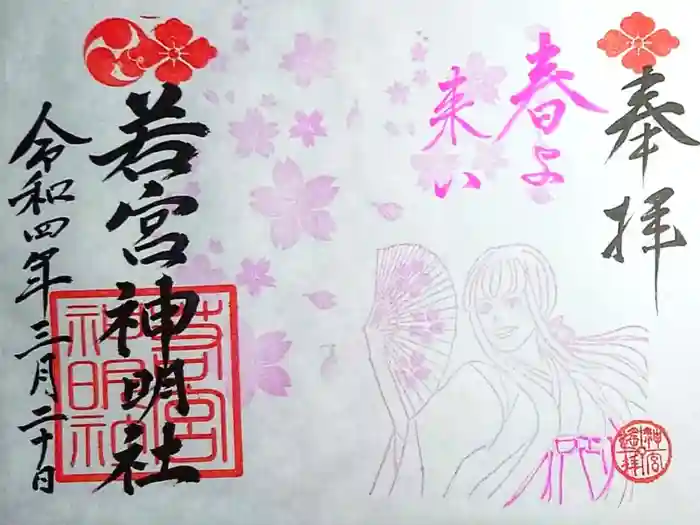 奉拝
春よ
来い
若宮神明社
令和四年三月二十日
若宮
神明社
神宮
遙拝